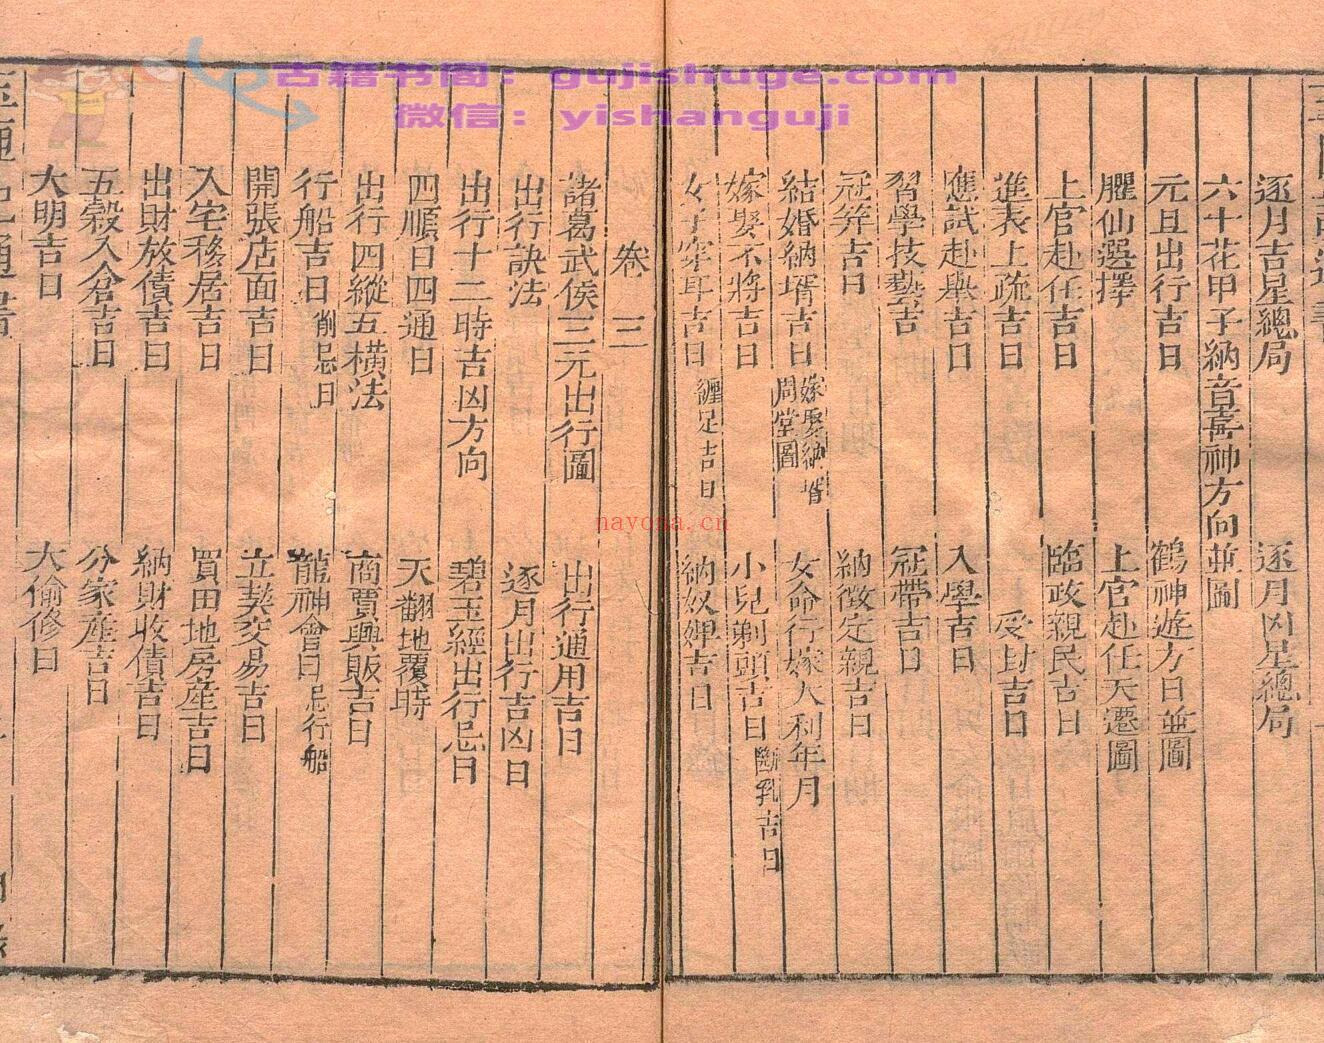 古籍书阁：gujishuge.com
微信：yishanguji
nayona.cn
逐月吉星總局　逐月凶星總局
六十花甲子納音喜神方向並圖
元旦出行吉日　鶴神遊方日並圖
臞仙選擇　上官赴任天遷圖
上官赴任吉日　臨政親民吉日
進表上疏吉日　受封吉日
應試赴舉吉日　入學吉日
習學技藝吉　冠帶吉日
冠笄吉日　納徵定親吉日
結婚納壻吉日　嫁娶納壻周堂圖　女命行嫁大利年月
嫁娶不將吉日　小兒剃頭吉日　斷乳吉日
女子穿耳吉日　纏足吉日　納奴婢吉日
卷三
諸葛武侯三元出行圖　出行通用吉日
出行訣法　逐月出行吉凶日
出行十二時吉凶方向　碧玉經出行忌日
四順日四通日　天翻地覆時
出行四縱五橫法　商賈興販吉日
行船吉日　忌日　龍神會日　忌行船
開張店面吉日　立契交易吉日
入宅移居吉日　買田地房產吉日
出財放債吉日　納財收債吉日
五穀入倉吉日　分家產吉日
大明吉日　大偷修日